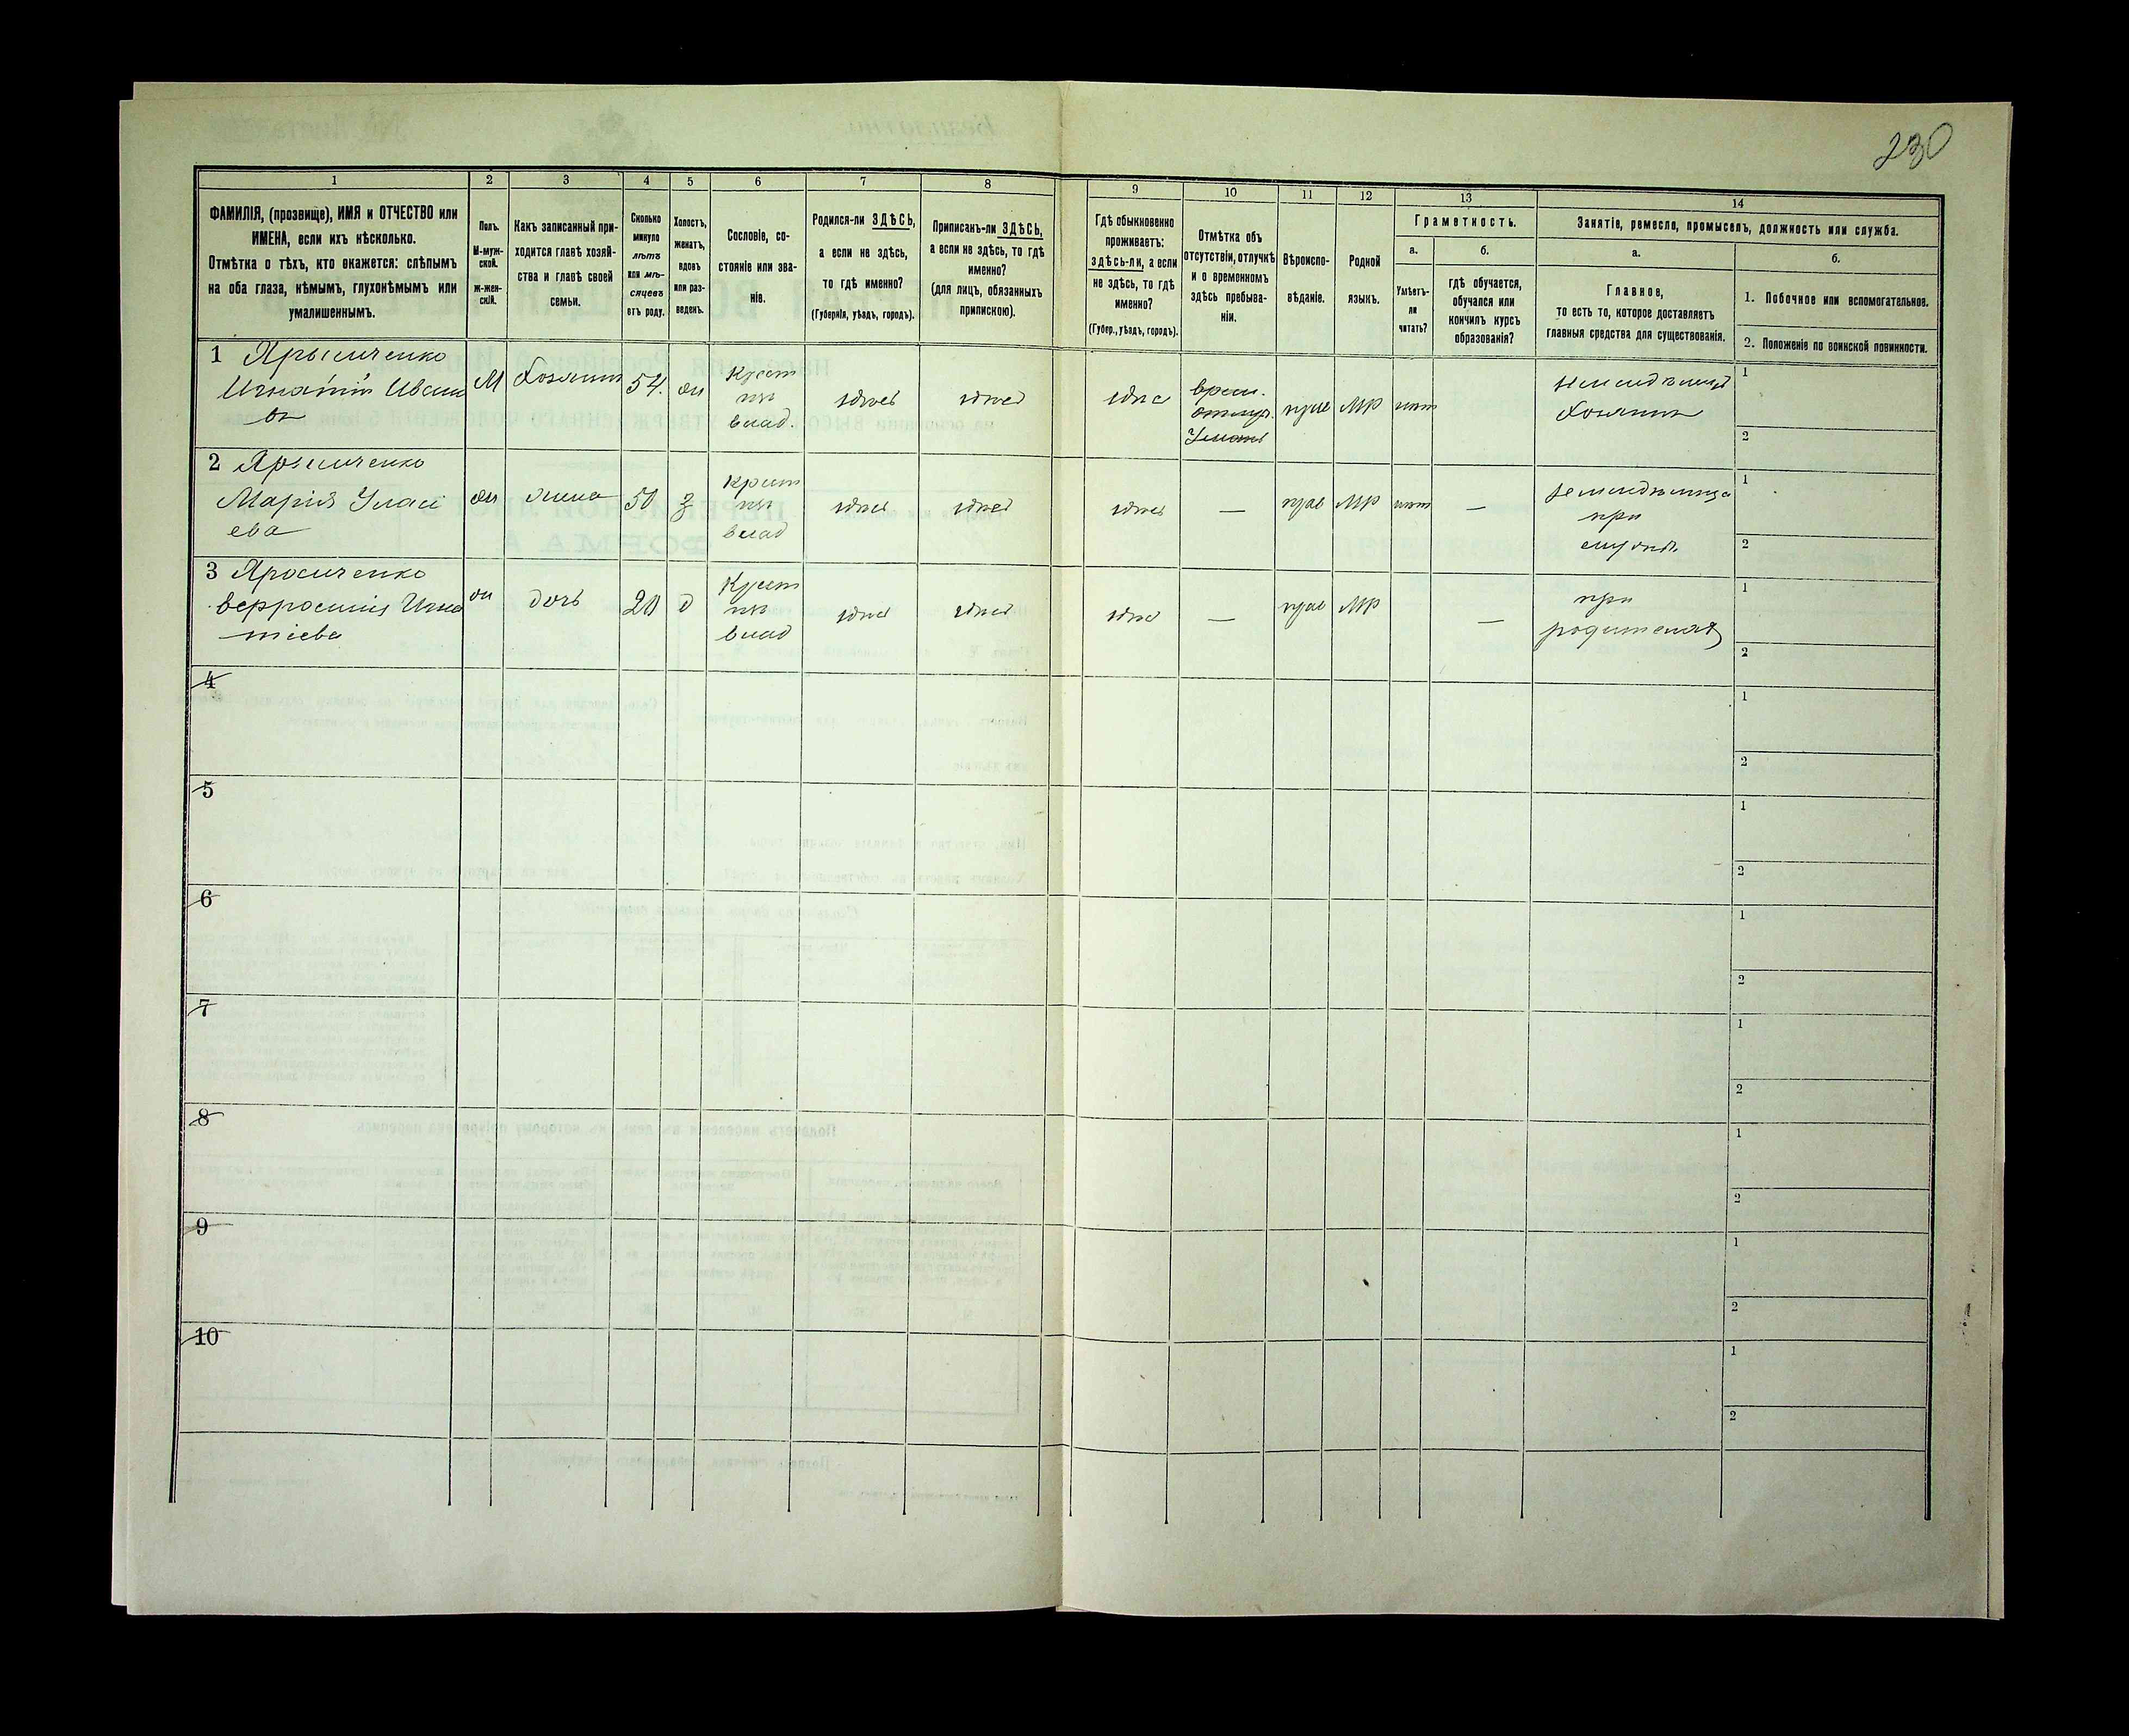 230
1
2
3
4
5
6
7
8
9
10
11
12
13
14
ФАМИЛІЯ, (прозвище), ИМЯ и ОТЧЕСТВО или
ИМЕНА, если ихъ нѣсколько.
Отмѣтка о тѣхъ, кто окажется: слѣпымъ
на оба глаза, нѣмымъ, глухонѣмымъ или
умалишеннымъ.
Полъ.
М-муж-
ской.
ж-жен-
скій.
Какъ записанный при-
ходится главѣ хозяй-
ства и главѣ своей
семьи.
Сколько
минуло
лѣтъ
или мѣ-
сяцевъ
отъ роду.
Холостъ,
женатъ,
вдовъ
или раз-
веденъ.
Сословіе, со-
стояніе или зва-
ніе.
Родился-ли ЗДѢСЬ,
а если не здѣсь,
то гдѣ именно?
(Губернія, уѣздъ, городъ).
Приписанъ-ли ЗДѢСЬ,
а если не здѣсь, то гдѣ
именно?
(для лицъ, обязанныхъ
припискою).
Гдѣ обыкновенно
проживаетъ:
здѣсь-ли, а если
не здѣсь, то гдѣ
именно?
(Губер., уѣздъ, городъ).
Отмѣтка объ
отсутствіи, отлучкѣ
и о временномъ
здѣсь пребыва-
ніи.
Вѣроиспо-
вѣданіе.
Родной
языкъ.
Грамотность.
а.
Умѣетъ-
ли
читать?
б.
гдѣ обучается,
обучался или
кончилъ курсъ
образованія?
Занятіе, ремесло, промыселъ, должность или служба.
а.
Главное,
то есть то, которое доставляетъ
главныя средства для существованія.
б.
1. Побочное или вспомогательное.
2. Положеніе по воинской повинности.
1
Игнатій Ивано
въ
М
Хозяинъ
54.
ж
Крест
изъ
влад.
здѣсь
здѣсь
здѣсь
врем.
отлуч.
прав
МР
нѣт
земледѣлецъ
Хозяинъ
1
2
2
Марія Уласі
ева
ж
жена
50
з
крест
изъ
влад
здѣсь
здѣсь
здѣсь
—
прав
МР
нѣт
—
земледѣлица
при
мужѣ
1
2
3
Игна
тіева
ж
дочь
20
д
Крест
изъ
влад
здѣсь
здѣсь
здѣсь
—
прав
МР
—
при
родителяхъ
1
2
4
1
2
5
1
2
6
1
2
7
1
2
8
1
2
9
1
2
10
1
2